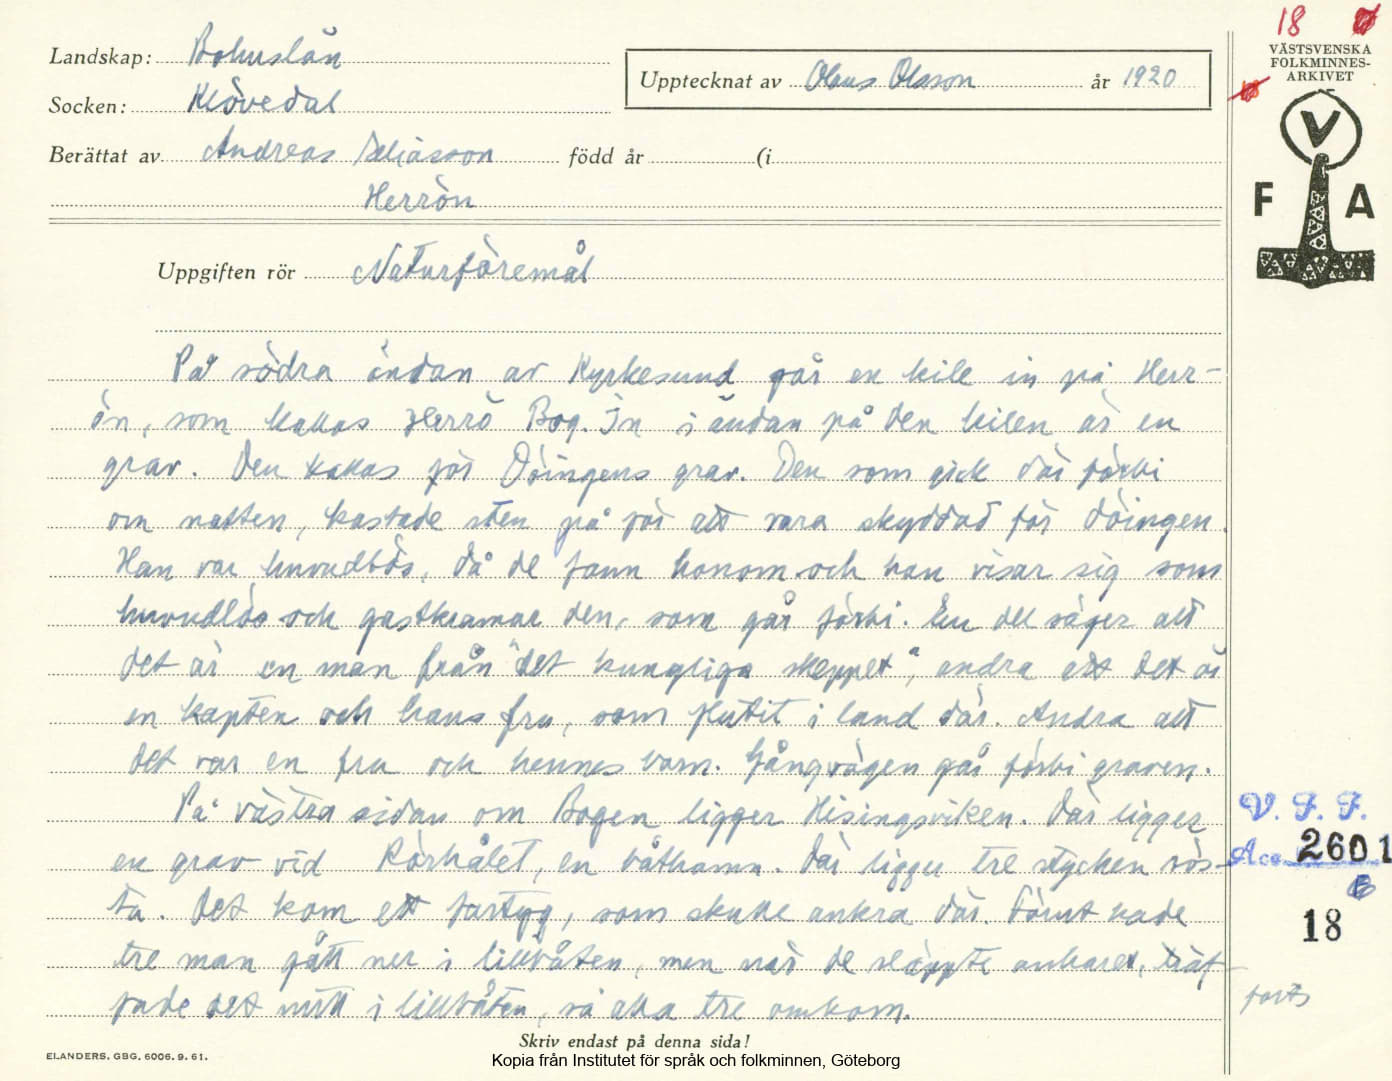 18
VÄSTSVENSKA
FOLKMINNES-
ARKIVET
V
F A
Landskap: Bohuslän
Socken: Klövedal
Upptecknat av Olaus Olsson år 1920
Berättat av Andreas Eliasson född år (i
Herrön
Uppgiften rör Naturföremål
På södra ändan av Kyrkesund går en kile in på Herr-
ön, som kallas Herrö Bog. In i ändan på den kilen är en
grav. Den kallas för Döingens grav. Den som gick där förbi
om natten, kastade sten på för att vara skyddad för döingen.
Han var huvudlös, då de fann honom och han visar sig som
huvudlös och gastkramar den, som går förbi. En del säger att
det är en man från "det kungliga skeppet", andra att det är
en kapten och hans fru, som flutit i land där. Andra att
det var en fru och hennes barn. Gångvägen går förbi graven.
På västra sidan om Bogen ligger Hisingsviken. Där ligger
en grav vid Rörhålet, en båthamn. Där ligger tre stycken rös-
ta. Det kom ett fartyg, som skulle ankra där. Förut hade
tre man gått ner i lillbåten, men när de släppte ankaret, träf-
fade det mitt i lillbåten, så alla tre omkom.
V. F. F.
Acc. 2601
18
forts
Skriv endast på denna sida!
ELANDERS. GBG. 6006. 9. 61.
Kopia från Institutet för språk och folkminnen, Göteborg